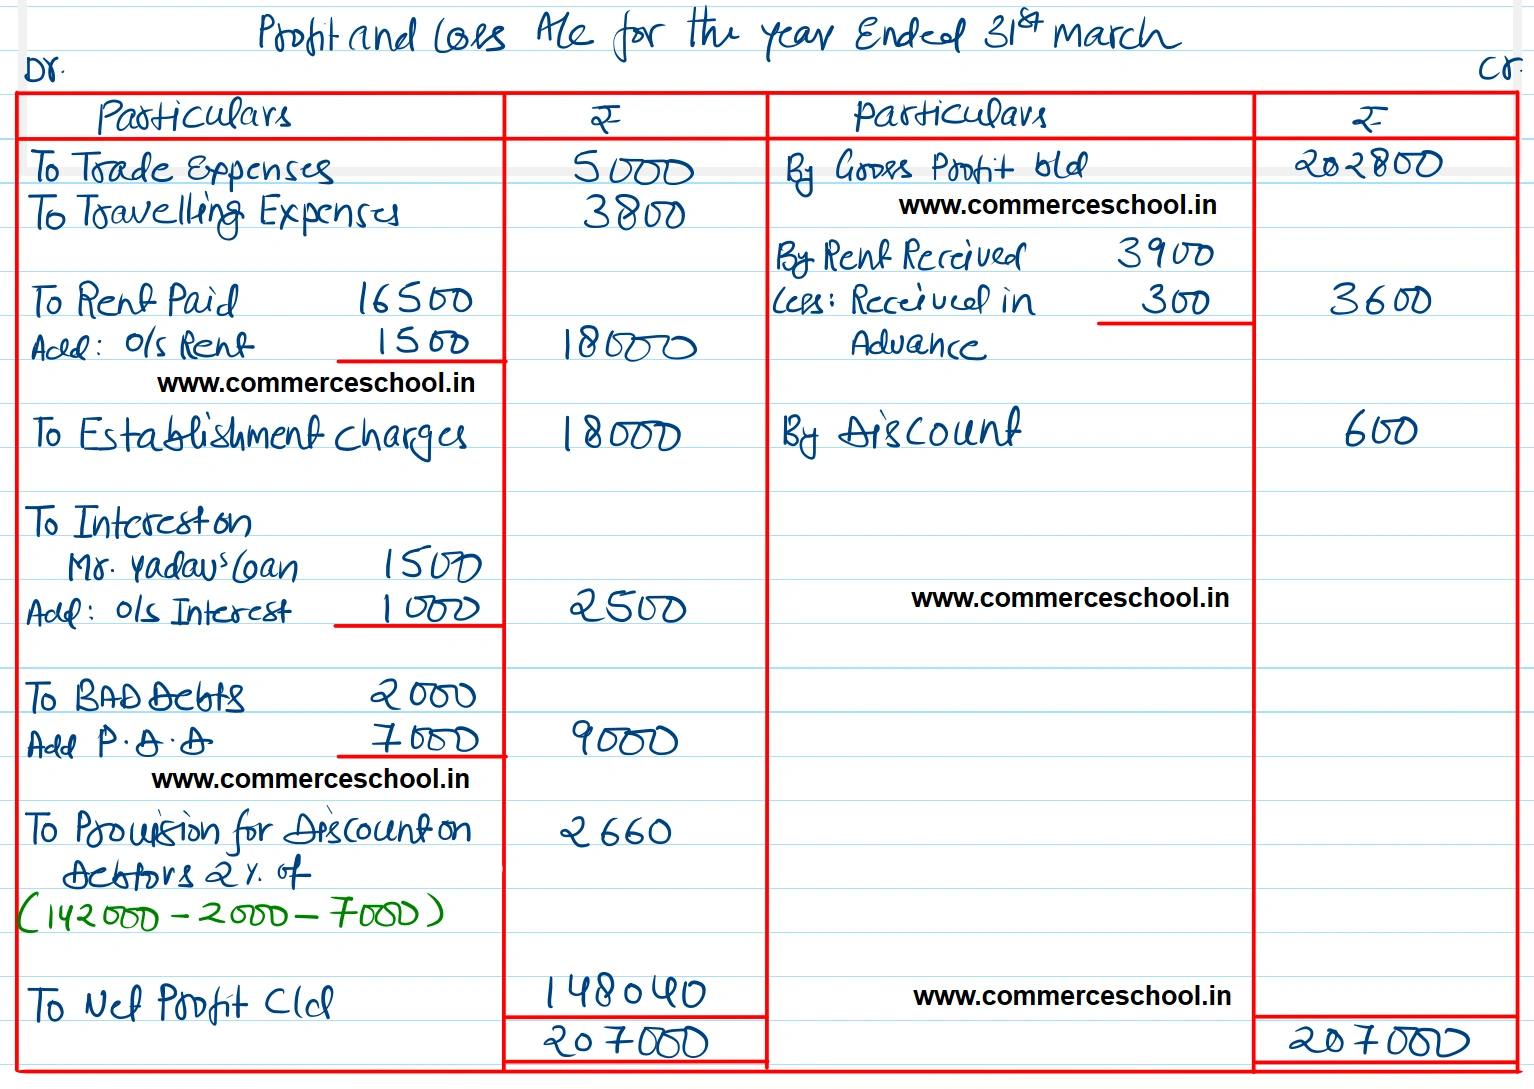 Profit and Loss A/c for the year Ended 31st March
Dr. Cr.
Particulars ₹ Particulars ₹
To Trade Expenses 5000 By Gross Profit b/d 202800
To Travelling Expenses 3800 www.commerceschool.in
By Rent Received 3900
To Rent Paid 16500 Less: Received in 300 3600
Add: O/s Rent 1500 18000 Advance
www.commerceschool.in
To Establishment Charges 18000 By Discount 600
To Interest on
Mr. Yadav's Loan 1500
Add: O/s Interest 1000 2500 www.commerceschool.in
To BAD Debts 2000
Add P.D.D 7000 9000
www.commerceschool.in
To Provision for Discount on 2660
Debtors 2%. of
(142000 - 2000 - 7000)
To Net Profit C/d 148040 www.commerceschool.in
207000 207000